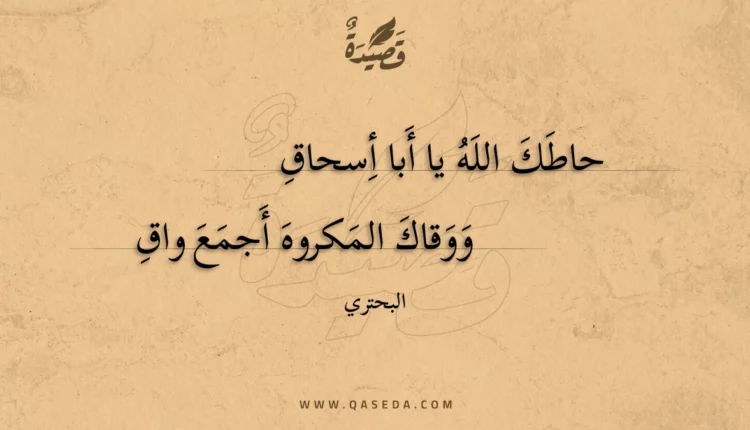 قَصِيدَةٌ
حاطَكَ اللَهُ يا أَبا أِسحاقِ
وَوَقاكَ المَكروهَ أَجمَعَ واقِ
البحتري
WWW.QASEDA.COM